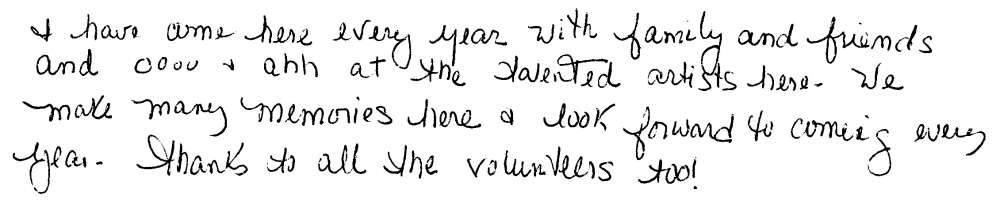 I have come here every year with family and friends
and oooo & ahh at the talented artists here. We
make many memories here & look forward to coming every
year. Thanks to all the volunteers too!